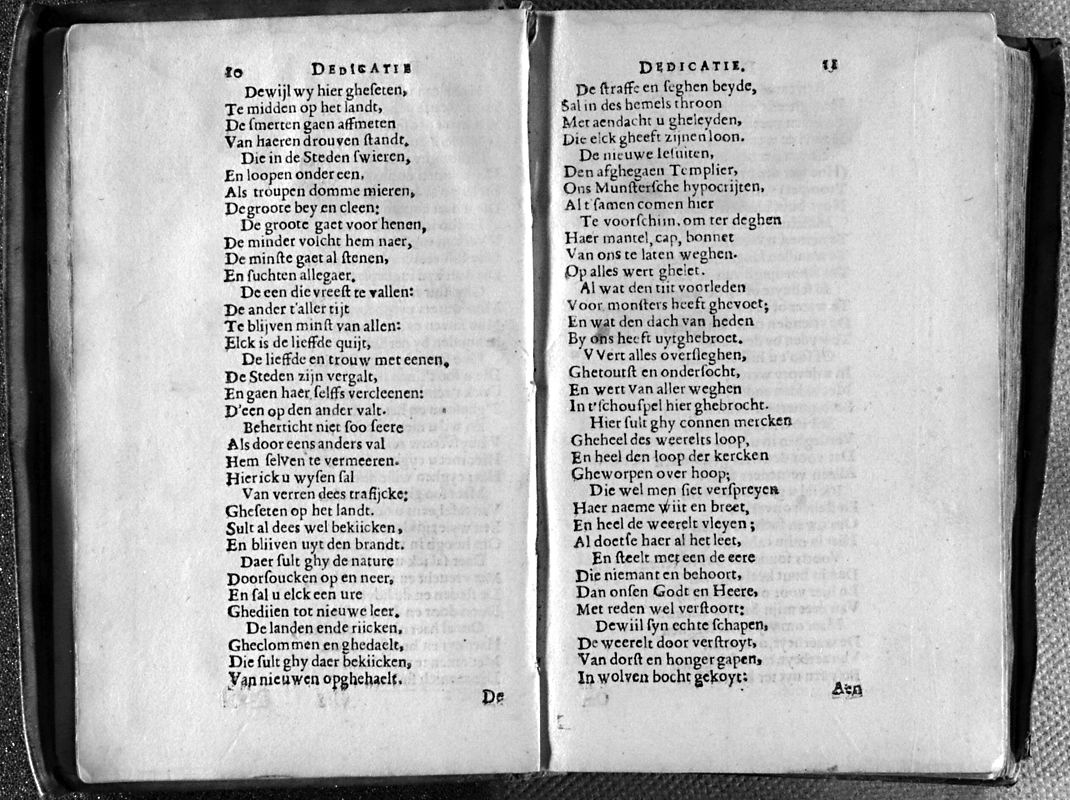 10 DEDICATIE
Dewijl wy hier gheſeten,
Te midden op het landt,
De ſmerten gaen affmeten
Van haeren drouven ſtandt.
Die in de Steden ſwieren,
En loopen onder een,
Als troupen domme mieren,
De groote bey en cleen:
De groote gaet voor henen,
De minder volcht hem naer,
De minſte gaet al ſtenen,
En ſuchten allegaer.
De een die vreeſt te vallen:
De ander t'aller tijt
Te blijven minſt van allen:
Elck is de lieffde quijt,
De lieffde en trouw met eenen,
De Steden zijn vergalt,
En gaen haer ſelffs vercleenen:
D'een op den ander valt.
Beherticht niet ſoo ſeere
Als door eens anders val
Hem ſelVen te vermeeren.
Hier ick u wyſen ſal
Van verren dees trafijcke:
Gheſeten op het landt.
Sult al dees wel bekiicken,
En bliiven uyt den brandt.
Daer ſult ghy de nature
Doorſoucken op en neer,
En ſal u elck een ure
Ghediien tot nieuwe leer.
De landen ende riicken,
Gheclommen en ghedaelt,
Die ſult ghy daer bekiicken,
Van nieuwen opghehaelt.
De
DEDICATIE. 11
De ſtraffe en ſeghen beyde,
Sal in des hemels throon
Met aendacht u gheleyden,
Die elck gheeft zijnen loon.
De nieuwe Ieſuiten,
Den afghegaen Templier,
Ons Munſterſche hypocrijten,
Al t'ſamen comen hier
Te voorſchiin, om ter deghen
Haer mantel, cap, bonnet
Van ons te laten weghen.
Op alles wert gheler.
Al wat den tiit voorleden
Voor monſters heeft ghevoet;
En wat den dach van heden
By ons heeft uytghebroet.
VVert alles overſleghen,
Ghetoutſt en onderſocht,
En wert van aller weghen
In t'ſchouſpel hier ghebrocht.
Hier ſult ghy connen mercken
Gheheel des weerelts loop,
En heel den loop der kercken
Gheworpen over hoop;
Die wel men ſiet verſpreyen
Haer naeme wiit en breet,
En heel de weerelt vleyen;
Al doetſe haer al het leet,
En ſteelt met een de eere
Die niemant en behoort,
Dan onſen Godt en Heere,
Met reden wel verſtoort:
Dewiil ſyn echte ſchapen,
De weerelt door verſtroyt,
Van dorſt en honger gapen,
In wolven bocht gekoyt:
Aen